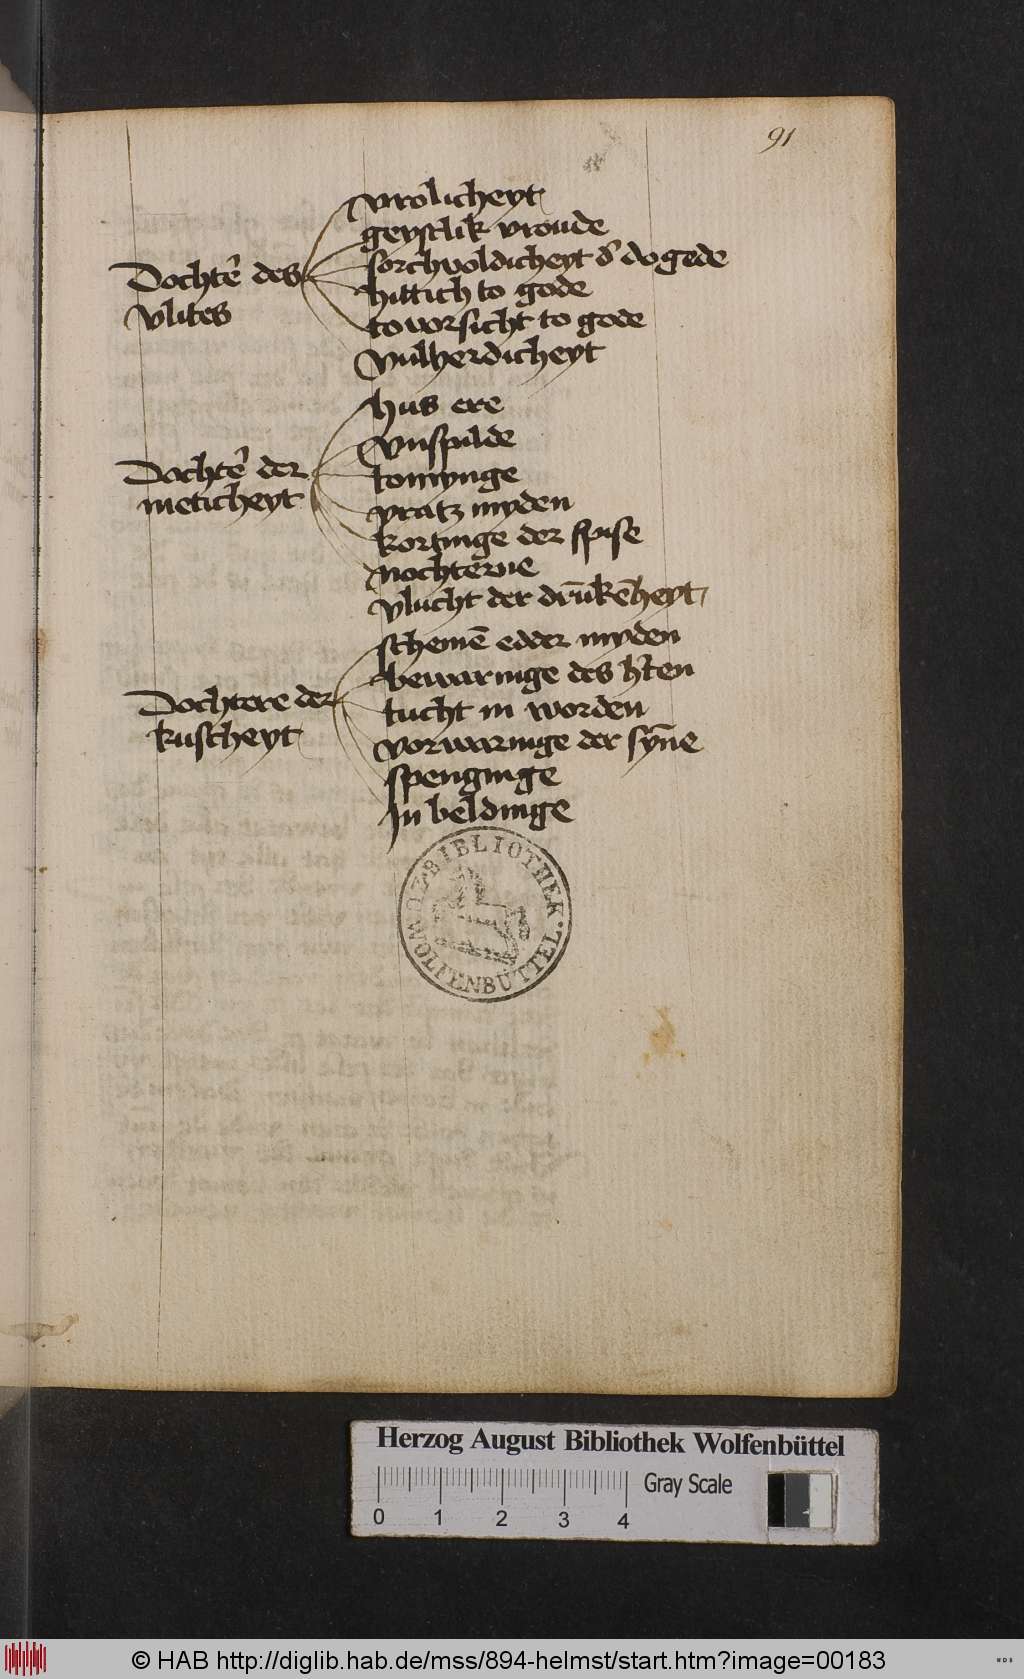 91
Dochtē des
vlites
vrolicheyt
geystlik vroude
sorchvoldicheyt d' dogede
hittich to gode
tovorsicht to gode
vulherdicheyt
Dochtē der
meticheyt
hus ere
vnspilde
tomynge
vratz myden
kortinge der spise
nochterne
vlucht der drūkēheyt
Dochtere der
kuscheyt
schemē edder myden
bewaringe des h'ten
tucht in worden
vorwaringe der sȳne
spenginge
In beldinge
BIBLIOTHEK.
WOLFENBÜTTEL.
Herzog August Bibliothek Wolfenbüttel
Gray Scale
0 1 2 3 4
© HAB http://diglib.hab.de/mss/894-helmst/start.htm?image=00183